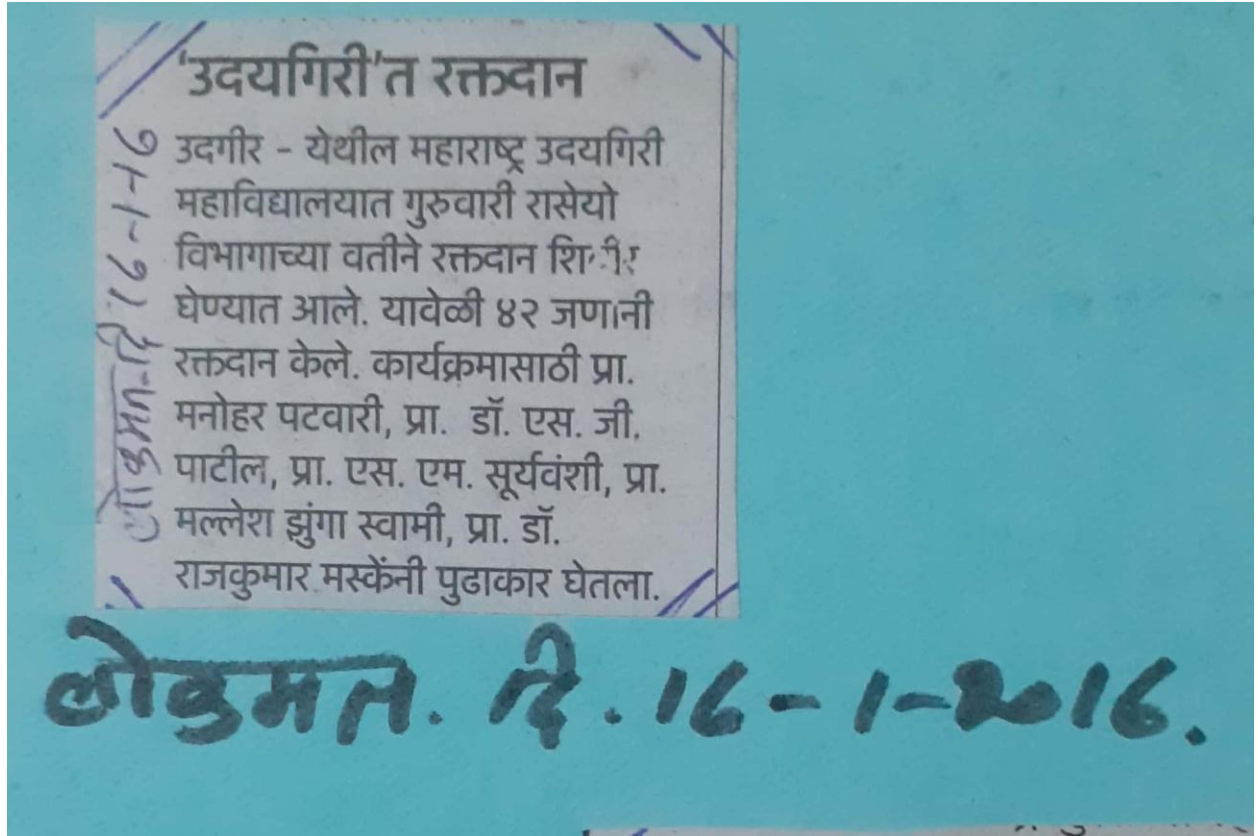 'उदयगिरी'त रक्तदान
उदगीर - येथील महाराष्ट्र उदयगिरी
महाविद्यालयात गुरुवारी रासेयो
विभागाच्या वतीने रक्तदान
घेण्यात आले. यावेळी ४२ जणांनी
रक्तदान केले. कार्यक्रमासाठी प्रा.
मनोहर पटवारी, प्रा. डॉ. एस. जी.
पाटील, प्रा. एस. एम. सूर्यवंशी, प्रा.
मल्लेश झुंगा स्वामी, प्रा. डॉ.
राजकुमार मस्केंनी पुढाकार घेतला.
लोकमत-दि 16-1-16
लोकमत. दि. 16-1-2016.